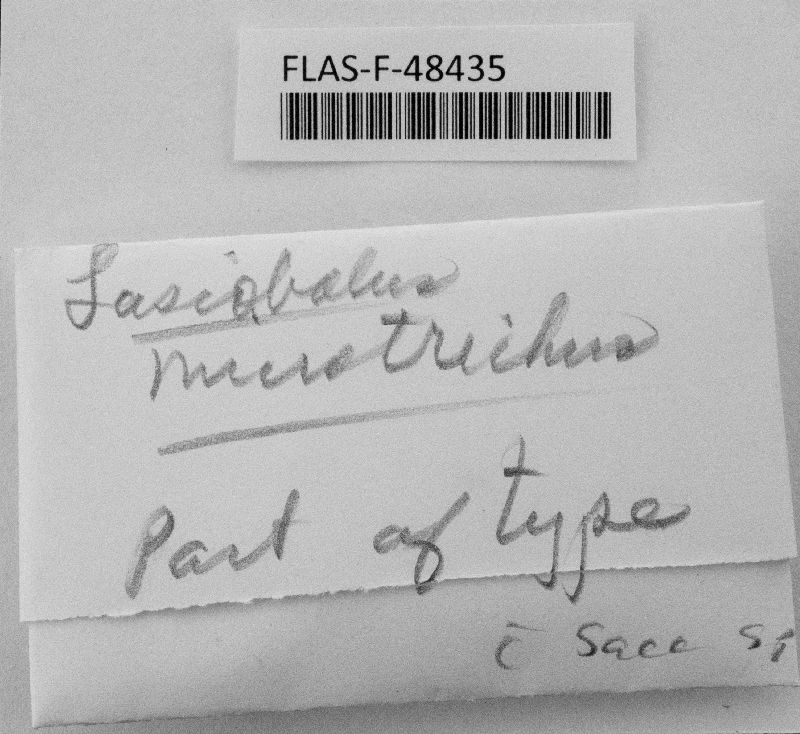 FLAS-F-48435
Lasiobolus
microtrichus
Part of type
c̄ Sacc